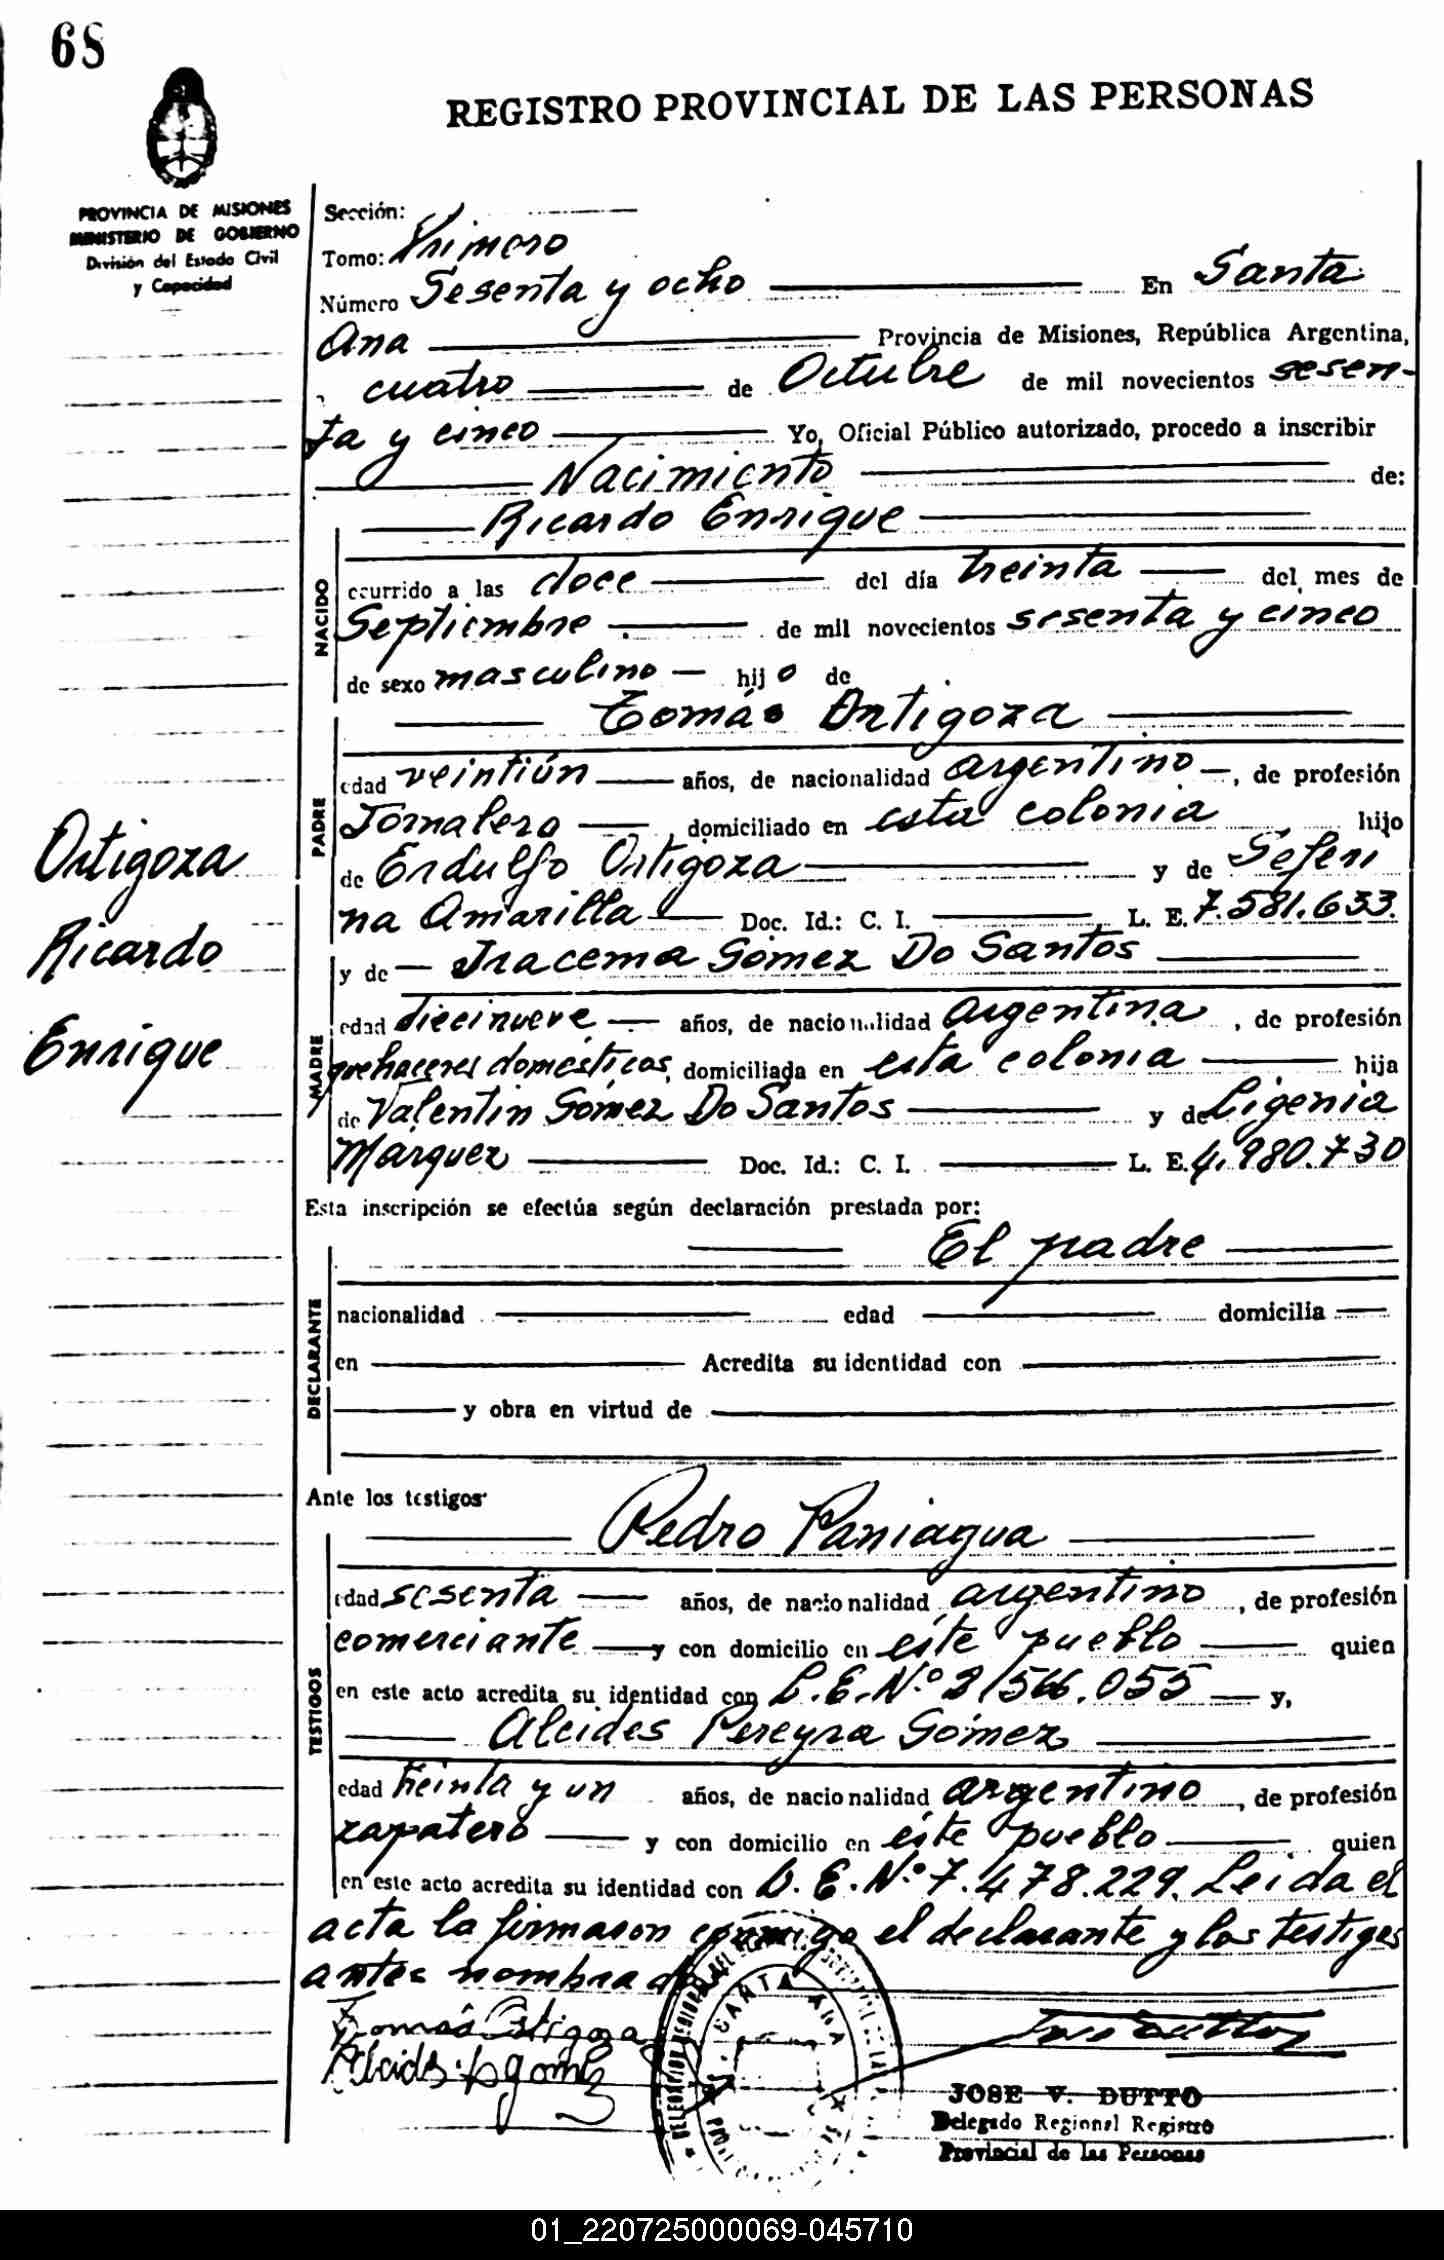 68
REGISTRO PROVINCIAL DE LAS PERSONAS
PROVINCIA DE MISIONES
MINISTERIO DE GOBIERNO
División del Estado Civil
y Capacidad
Sección:
Tomo: Primero
Número Sesenta y ocho En Santa
Ana Provincia de Misiones, República Argentina,
cuatro de Octubre de mil novecientos sesen-
ta y cinco Yo, Oficial Público autorizado, procedo a inscribir
Nacimiento de:
Ricardo Enrique
NACIDO
ocurrido a las doce del día treinta del mes de
Septiembre de mil novecientos sesenta y cinco
de sexo masculino hijo de
Tomás Ortigoza
PADRE
edad veintiún años, de nacionalidad argentino, de profesión
Jornalero domiciliado en esta colonia hijo
de Erdulfo Ortigoza y de Seferi
na Amarilla Doc. Id.: C. I. L. E. 7.581.633.
y de Iracema Gómez Do Santos
MADRE
edad diecinueve años, de nacionalidad argentina, de profesión
quehaceres domésticos, domiciliada en esta colonia hija
de Valentin Gómez Do Santos y de Ligenia
Marquez Doc. Id.: C. I. L. E. 4.980.730
Ortigoza
Ricardo
Enrique
Esta inscripción se efectúa según declaración prestada por:
El padre
DECLARANTE
nacionalidad edad domicilia
en Acredita su identidad con
y obra en virtud de
Ante los testigos
Pedro Paniagua
TESTIGOS
edad sesenta años, de nacionalidad argentino, de profesión
comerciante y con domicilio en éste pueblo quien
en este acto acredita su identidad con L. E. Nº y,
Alcides Pereyra Gómez
edad treinta y un años, de nacionalidad argentino, de profesión
zapatero y con domicilio en éste pueblo quien
en este acto acredita su identidad con L. E. Nº 7.478.229. Leida el
acta la firmaron conmigo el declarante y los testigos
antes nombrados
Tomás Ortigoza
SANTA ANA
JOSE V. DUTTO
Delegado Regional Registro
Provincial de las Personas
01_220725000069-045710